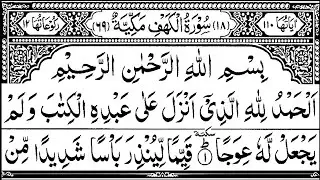 اٰيَاتُهَا ١١٠ (١٨) سُوْرَةُ الْكَهْفِ مَكِّيَّةٌ (٦٩) رُكُوْعَاتُهَا ١٢
بِسْمِ اللهِ الرَّحْمٰنِ الرَّحِيْمِ
اَلْحَمْدُ لِلّٰهِ الَّذِيْٓ اَنْزَلَ عَلٰى عَبْدِهِ الْكِتٰبَ وَلَمْ
يَجْعَلْ لَّهٗ عِوَجًا ۜ ١ قَيِّمًا لِّيُنْذِرَ بَاْسًا شَدِيْدًا مِّنْ